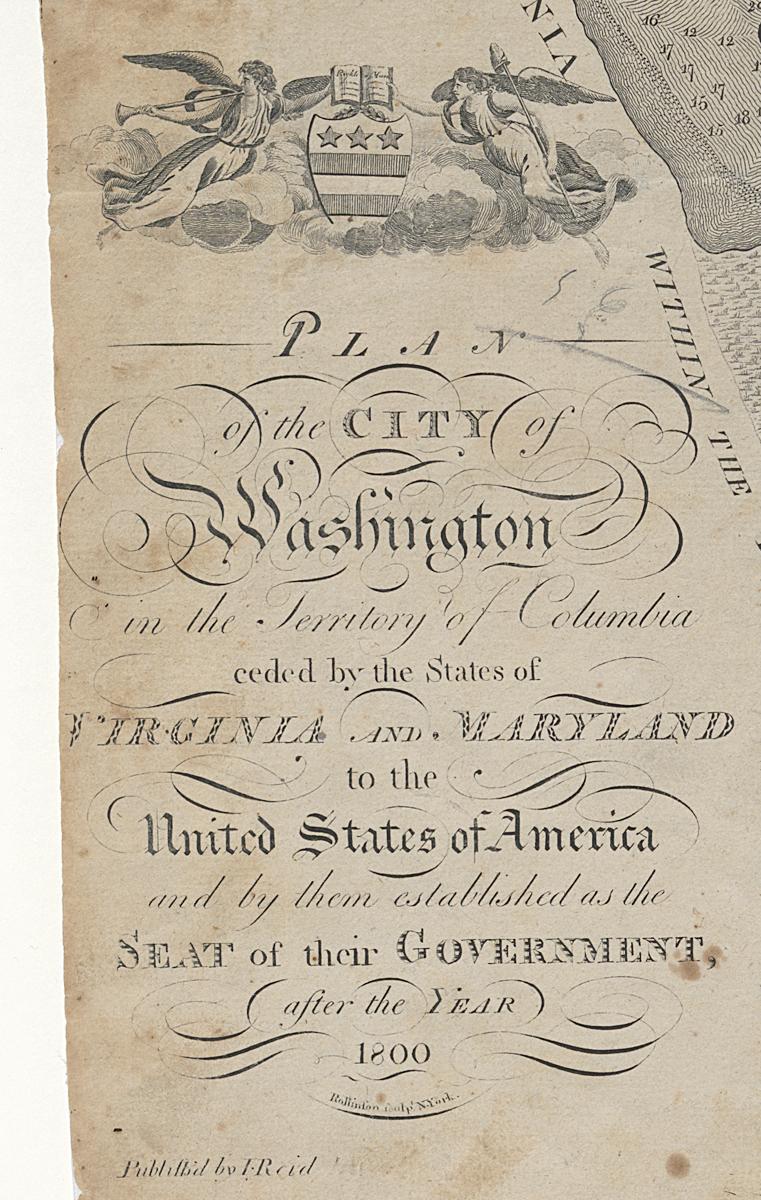 Rights of Man
NIA
16
12
12
17
17
17
15
18
15
WITHIN THE
PLAN
of the CITY of
Washington
in the Territory of Columbia
ceded by the States of
VIRGINIA AND MARYLAND
to the
United States of America
and by them established as the
SEAT of their GOVERNMENT,
after the YEAR
1800
Rollinson sculpt. N. York.
Publish'd by I. Reid